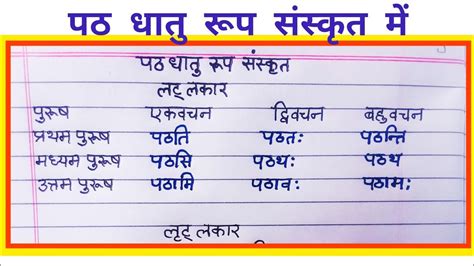 पठ धातु रूप संस्कृत में
पठ धातु रूप संस्कृत
लट् लकार
पुरूष एकवचन द्विवचन बहुवचन
प्रथम पुरूष पठति पठतः पठन्ति
मध्यम पुरूष पठसि पठथः पठथ
उत्तम पुरूष पठामि पठावः पठामः
लृट् लकार